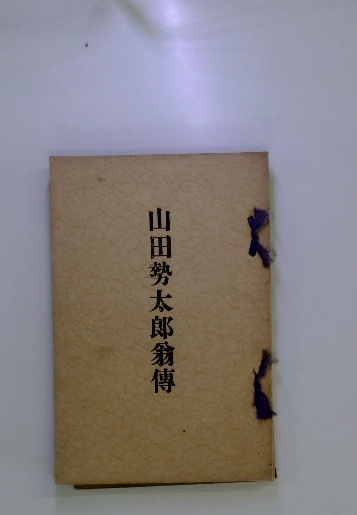 山田勢太郎翁傳